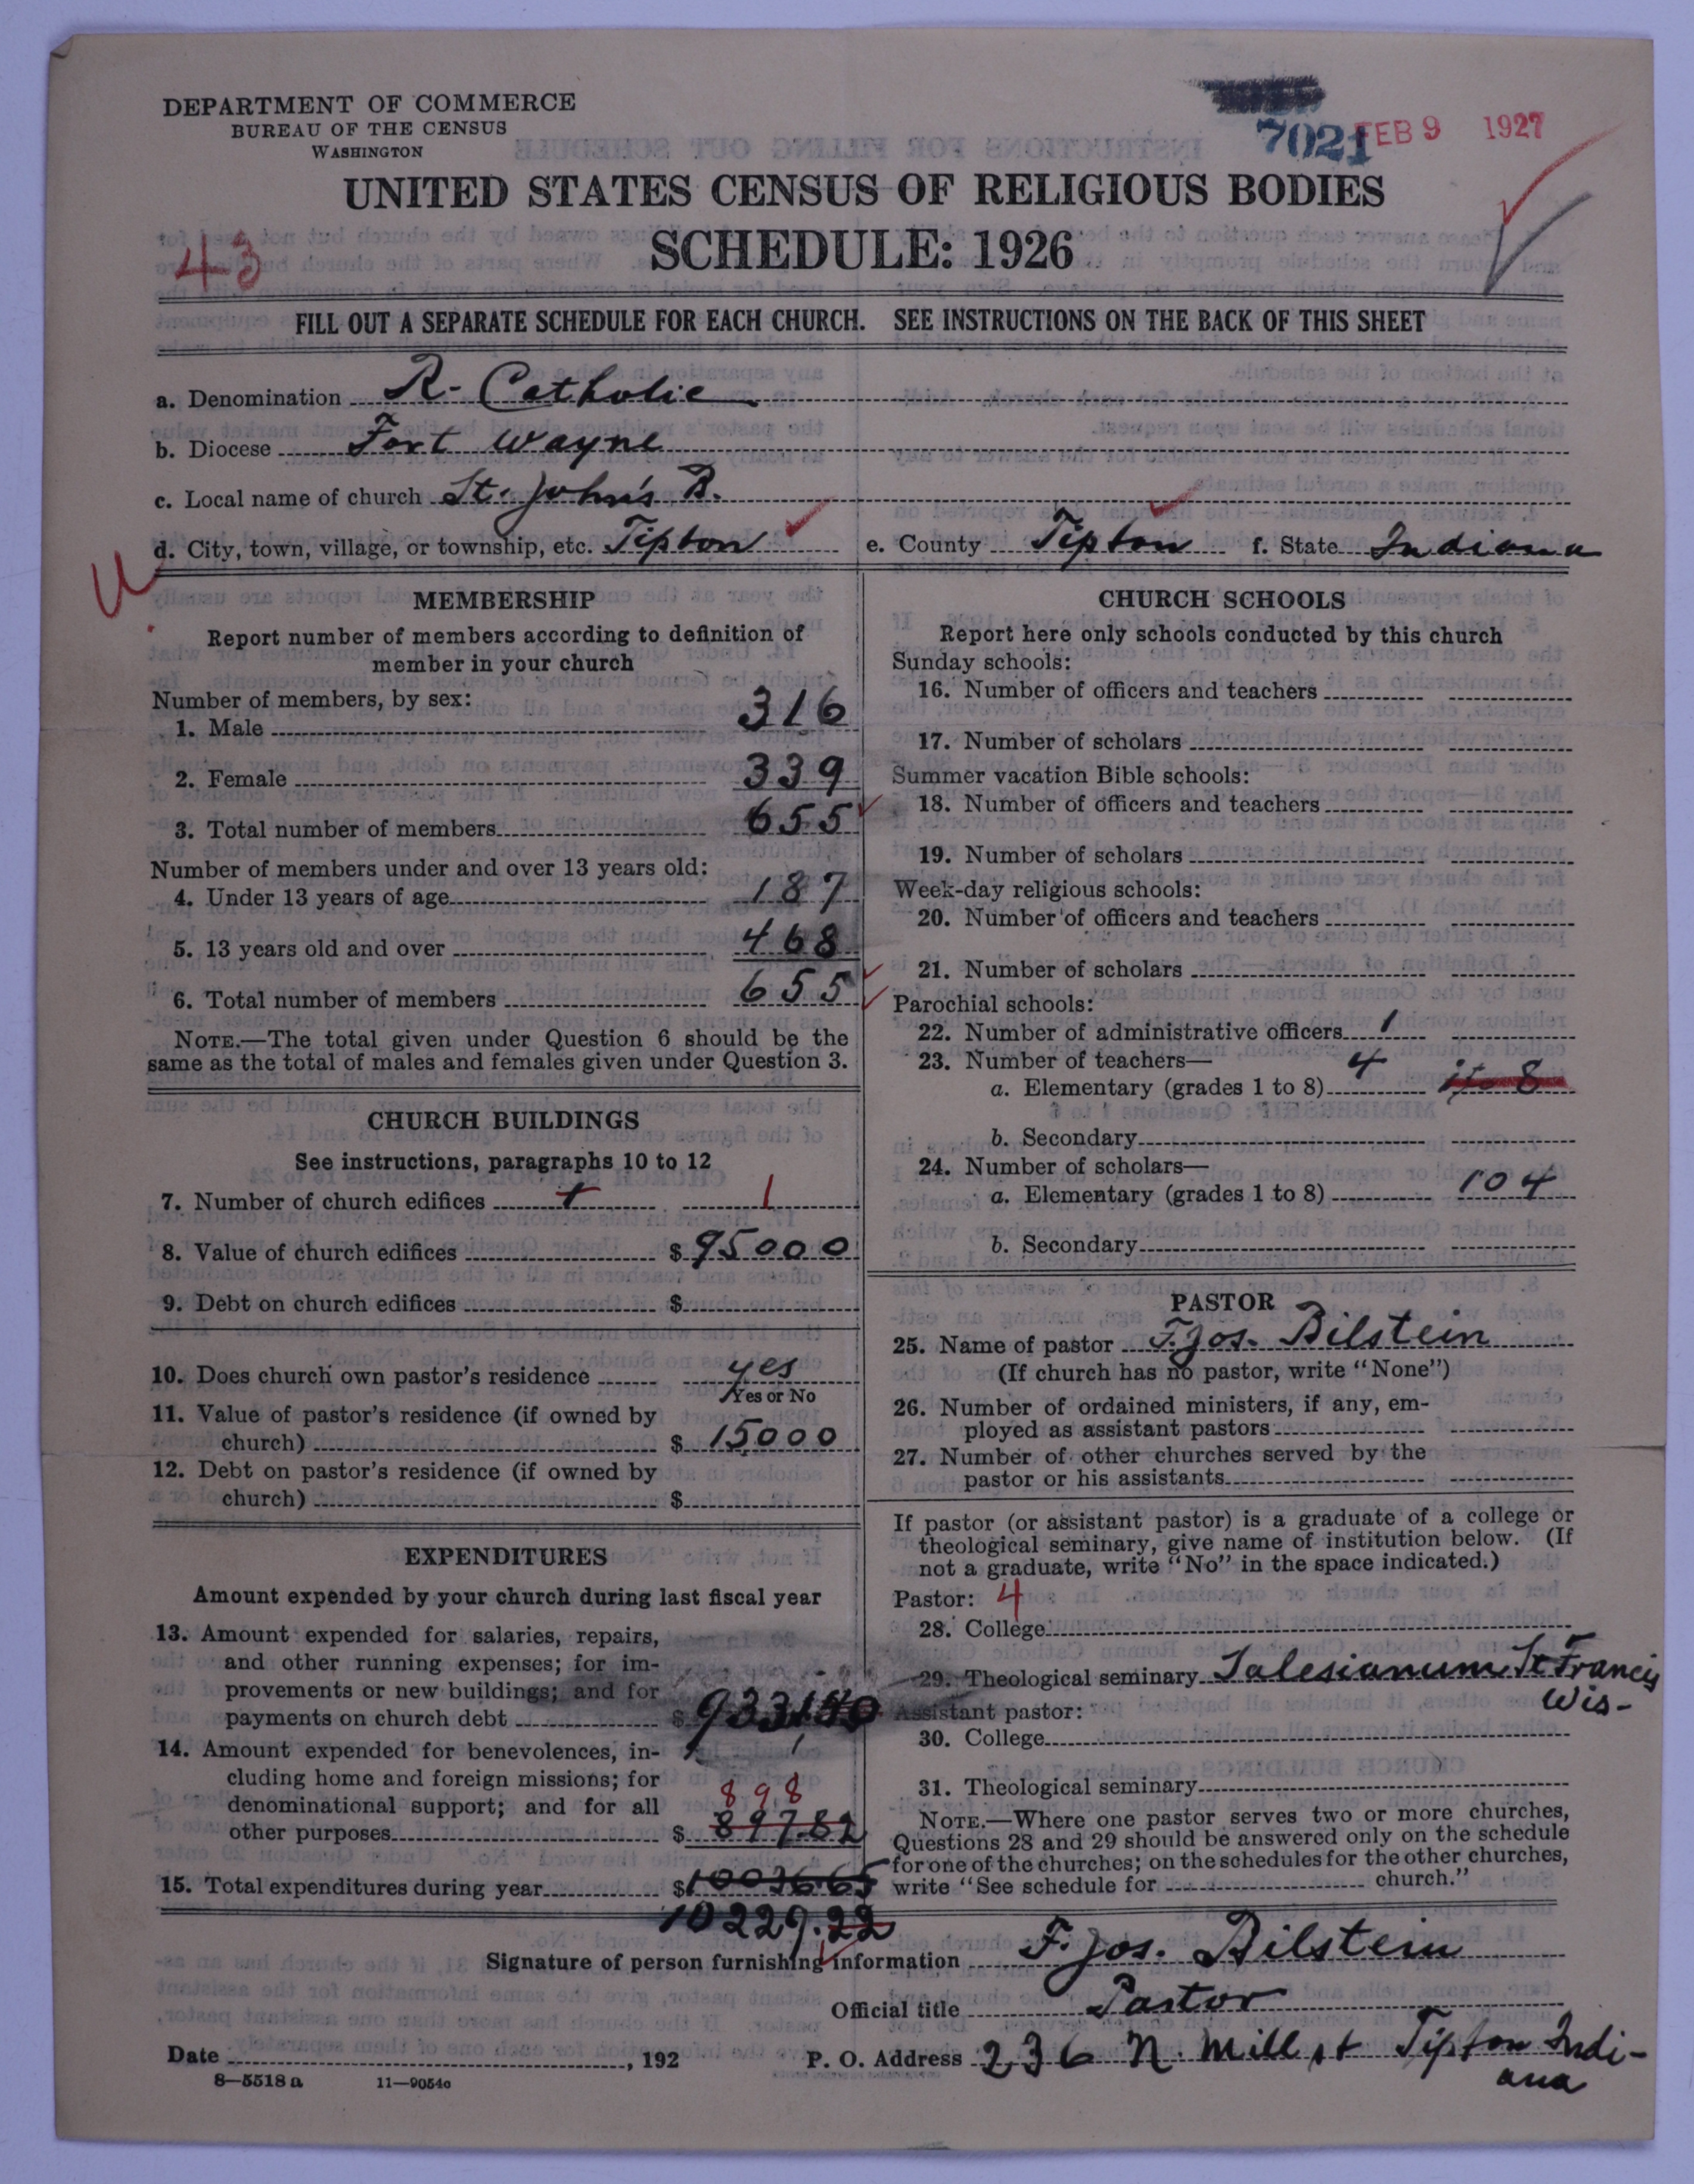 DEPARTMENT OF COMMERCE
BUREAU OF THE CENSUS
WASHINGTON
7021
FEB 9 1927
UNITED STATES CENSUS OF RELIGIOUS BODIES
SCHEDULE: 1926
43
FILL OUT A SEPARATE SCHEDULE FOR EACH CHURCH. SEE INSTRUCTIONS ON THE BACK OF THIS SHEET
a. Denomination R- Catholic
b. Diocese Fort Wayne
c. Local name of church St. John's B.
d. City, town, village, or township, etc. Tipton e. County Tipton f. State Indiana
U
MEMBERSHIP
Report number of members according to definition of
member in your church
Number of members, by sex:
1. Male 316
2. Female 339
3. Total number of members 655
Number of members under and over 13 years old:
4. Under 13 years of age 187
5. 13 years old and over 468
6. Total number of members 655
NOTE.—The total given under Question 6 should be the
same as the total of males and females given under Question 3.
CHURCH BUILDINGS
See instructions, paragraphs 10 to 12
7. Number of church edifices 1 1
8. Value of church edifices $ 95000
9. Debt on church edifices $
10. Does church own pastor's residence yes
Yes or No
11. Value of pastor's residence (if owned by
church) $ 15000
12. Debt on pastor's residence (if owned by
church) $
EXPENDITURES
Amount expended by your church during last fiscal year
13. Amount expended for salaries, repairs,
and other running expenses; for im-
provements or new buildings; and for
payments on church debt $ 9331.40
14. Amount expended for benevolences, in-
cluding home and foreign missions; for
denominational support; and for all 898
other purposes $ 897.82
15. Total expenditures during year $ 10036 65
10229.22
CHURCH SCHOOLS
Report here only schools conducted by this church
Sunday schools:
16. Number of officers and teachers
17. Number of scholars
Summer vacation Bible schools:
18. Number of officers and teachers
19. Number of scholars
Week-day religious schools:
20. Number of officers and teachers
21. Number of scholars
Parochial schools:
22. Number of administrative officers 1
23. Number of teachers— 4
a. Elementary (grades 1 to 8) 1 to 8
b. Secondary
24. Number of scholars—
a. Elementary (grades 1 to 8) 104
b. Secondary
PASTOR
25. Name of pastor F. Jos. Bilstein
(If church has no pastor, write "None")
26. Number of ordained ministers, if any, em-
ployed as assistant pastors
27. Number of other churches served by the
pastor or his assistants
If pastor (or assistant pastor) is a graduate of a college or
theological seminary, give name of institution below. (If
not a graduate, write "No" in the space indicated.)
Pastor: 4
28. College
29. Theological seminary Salesianum St Francis
Wis-
Assistant pastor:
30. College
31. Theological seminary
NOTE.—Where one pastor serves two or more churches,
Questions 28 and 29 should be answered only on the schedule
for one of the churches; on the schedules for the other churches,
write "See schedule for church."
Signature of person furnishing information F. Jos. Bilstein
Official title Pastor
Date , 192 P. O. Address 236 N. Mill st Tipton Indi-
ana
8—5518 a 11—9054c